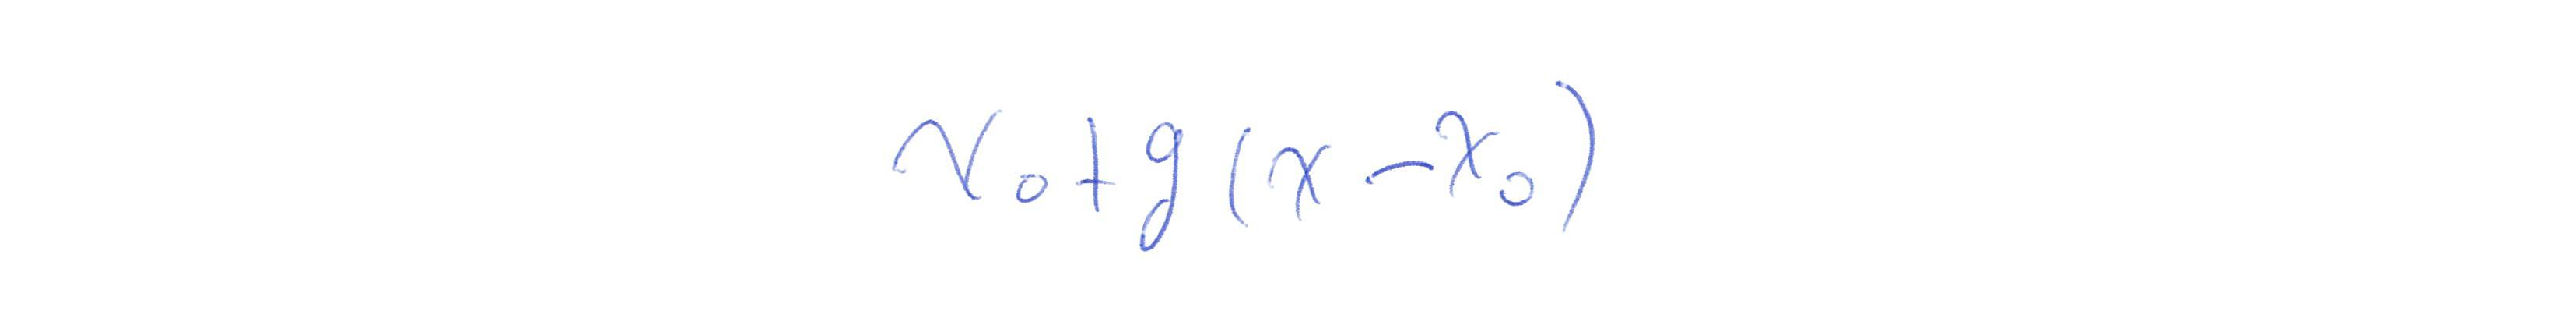 v₀ + g(x - x₀)